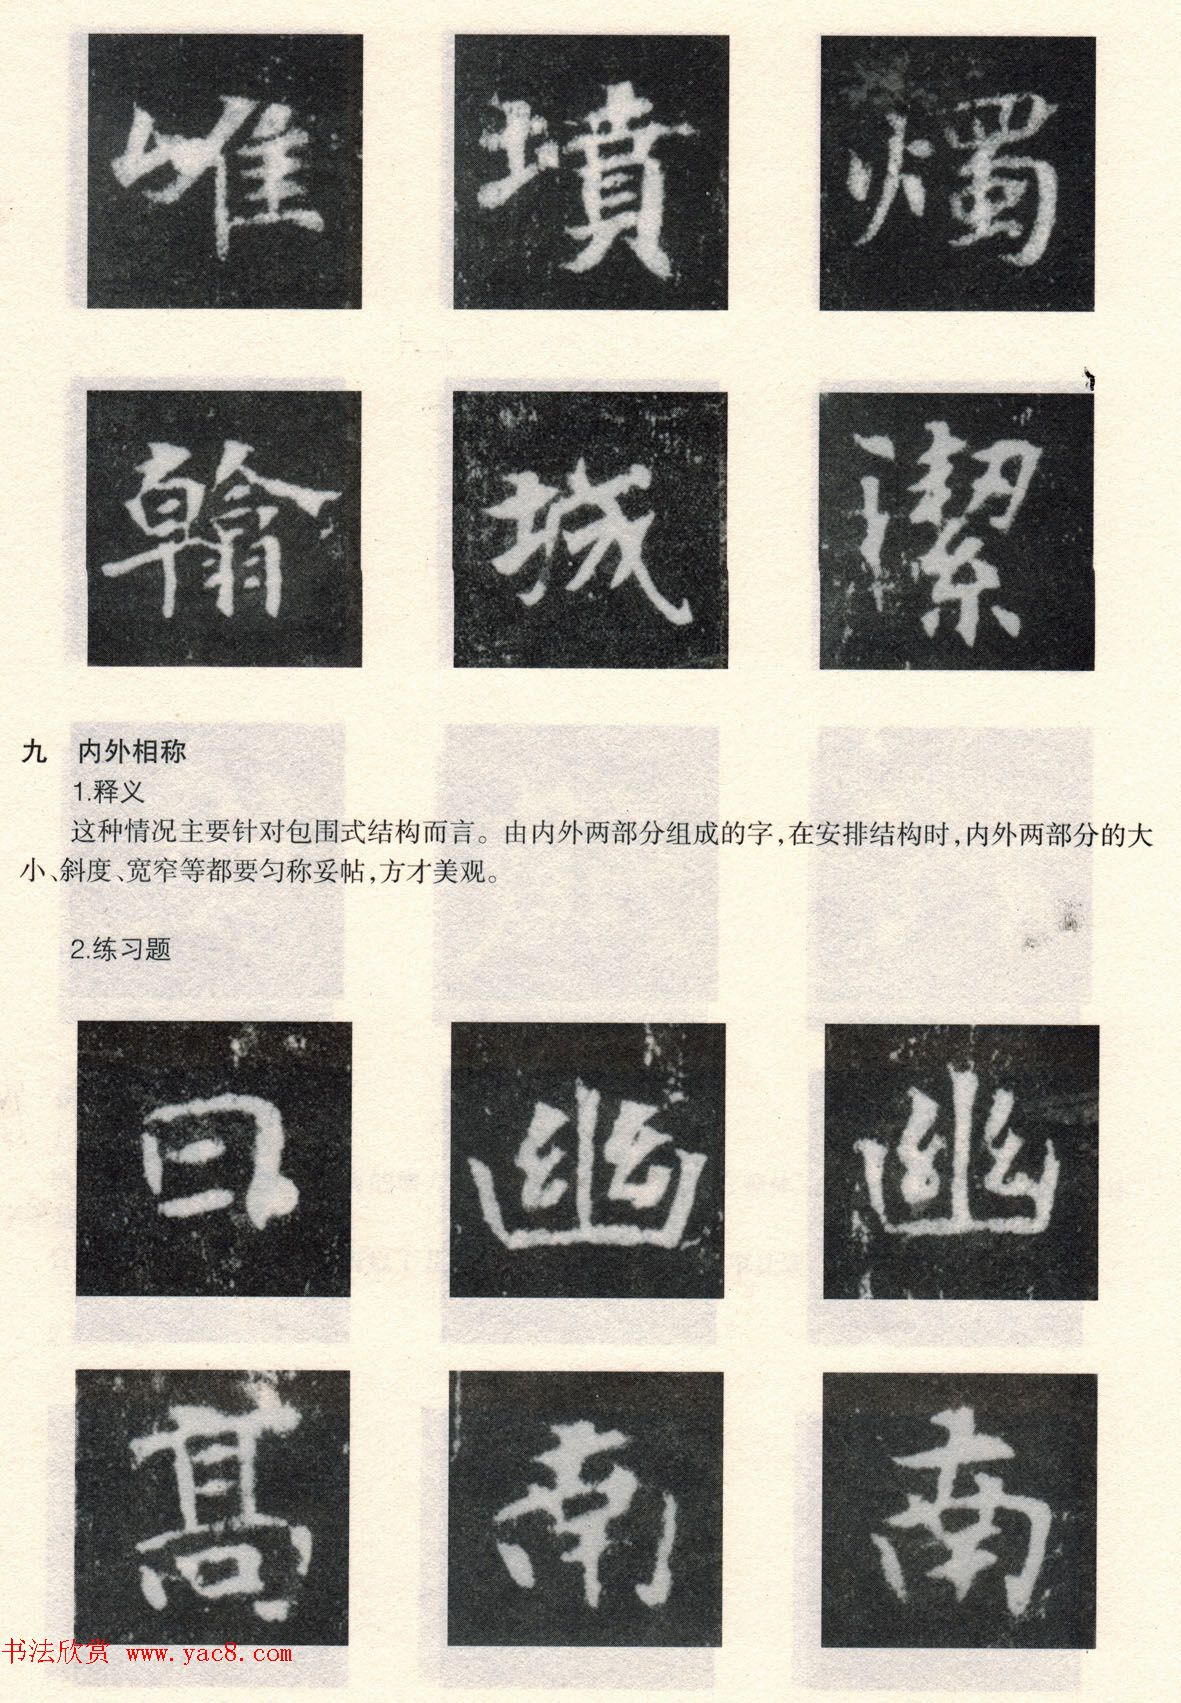 唯 墳 燭
翰 城 潔
九 内外相称
1.释义
这种情况主要针对包围式结构而言。由内外两部分组成的字,在安排结构时,内外两部分的大
小、斜度、宽窄等都要匀称妥帖,方才美观。
2.练习题
曰 幽 幽
髙 南 南
书法欣赏 www.yac8.com